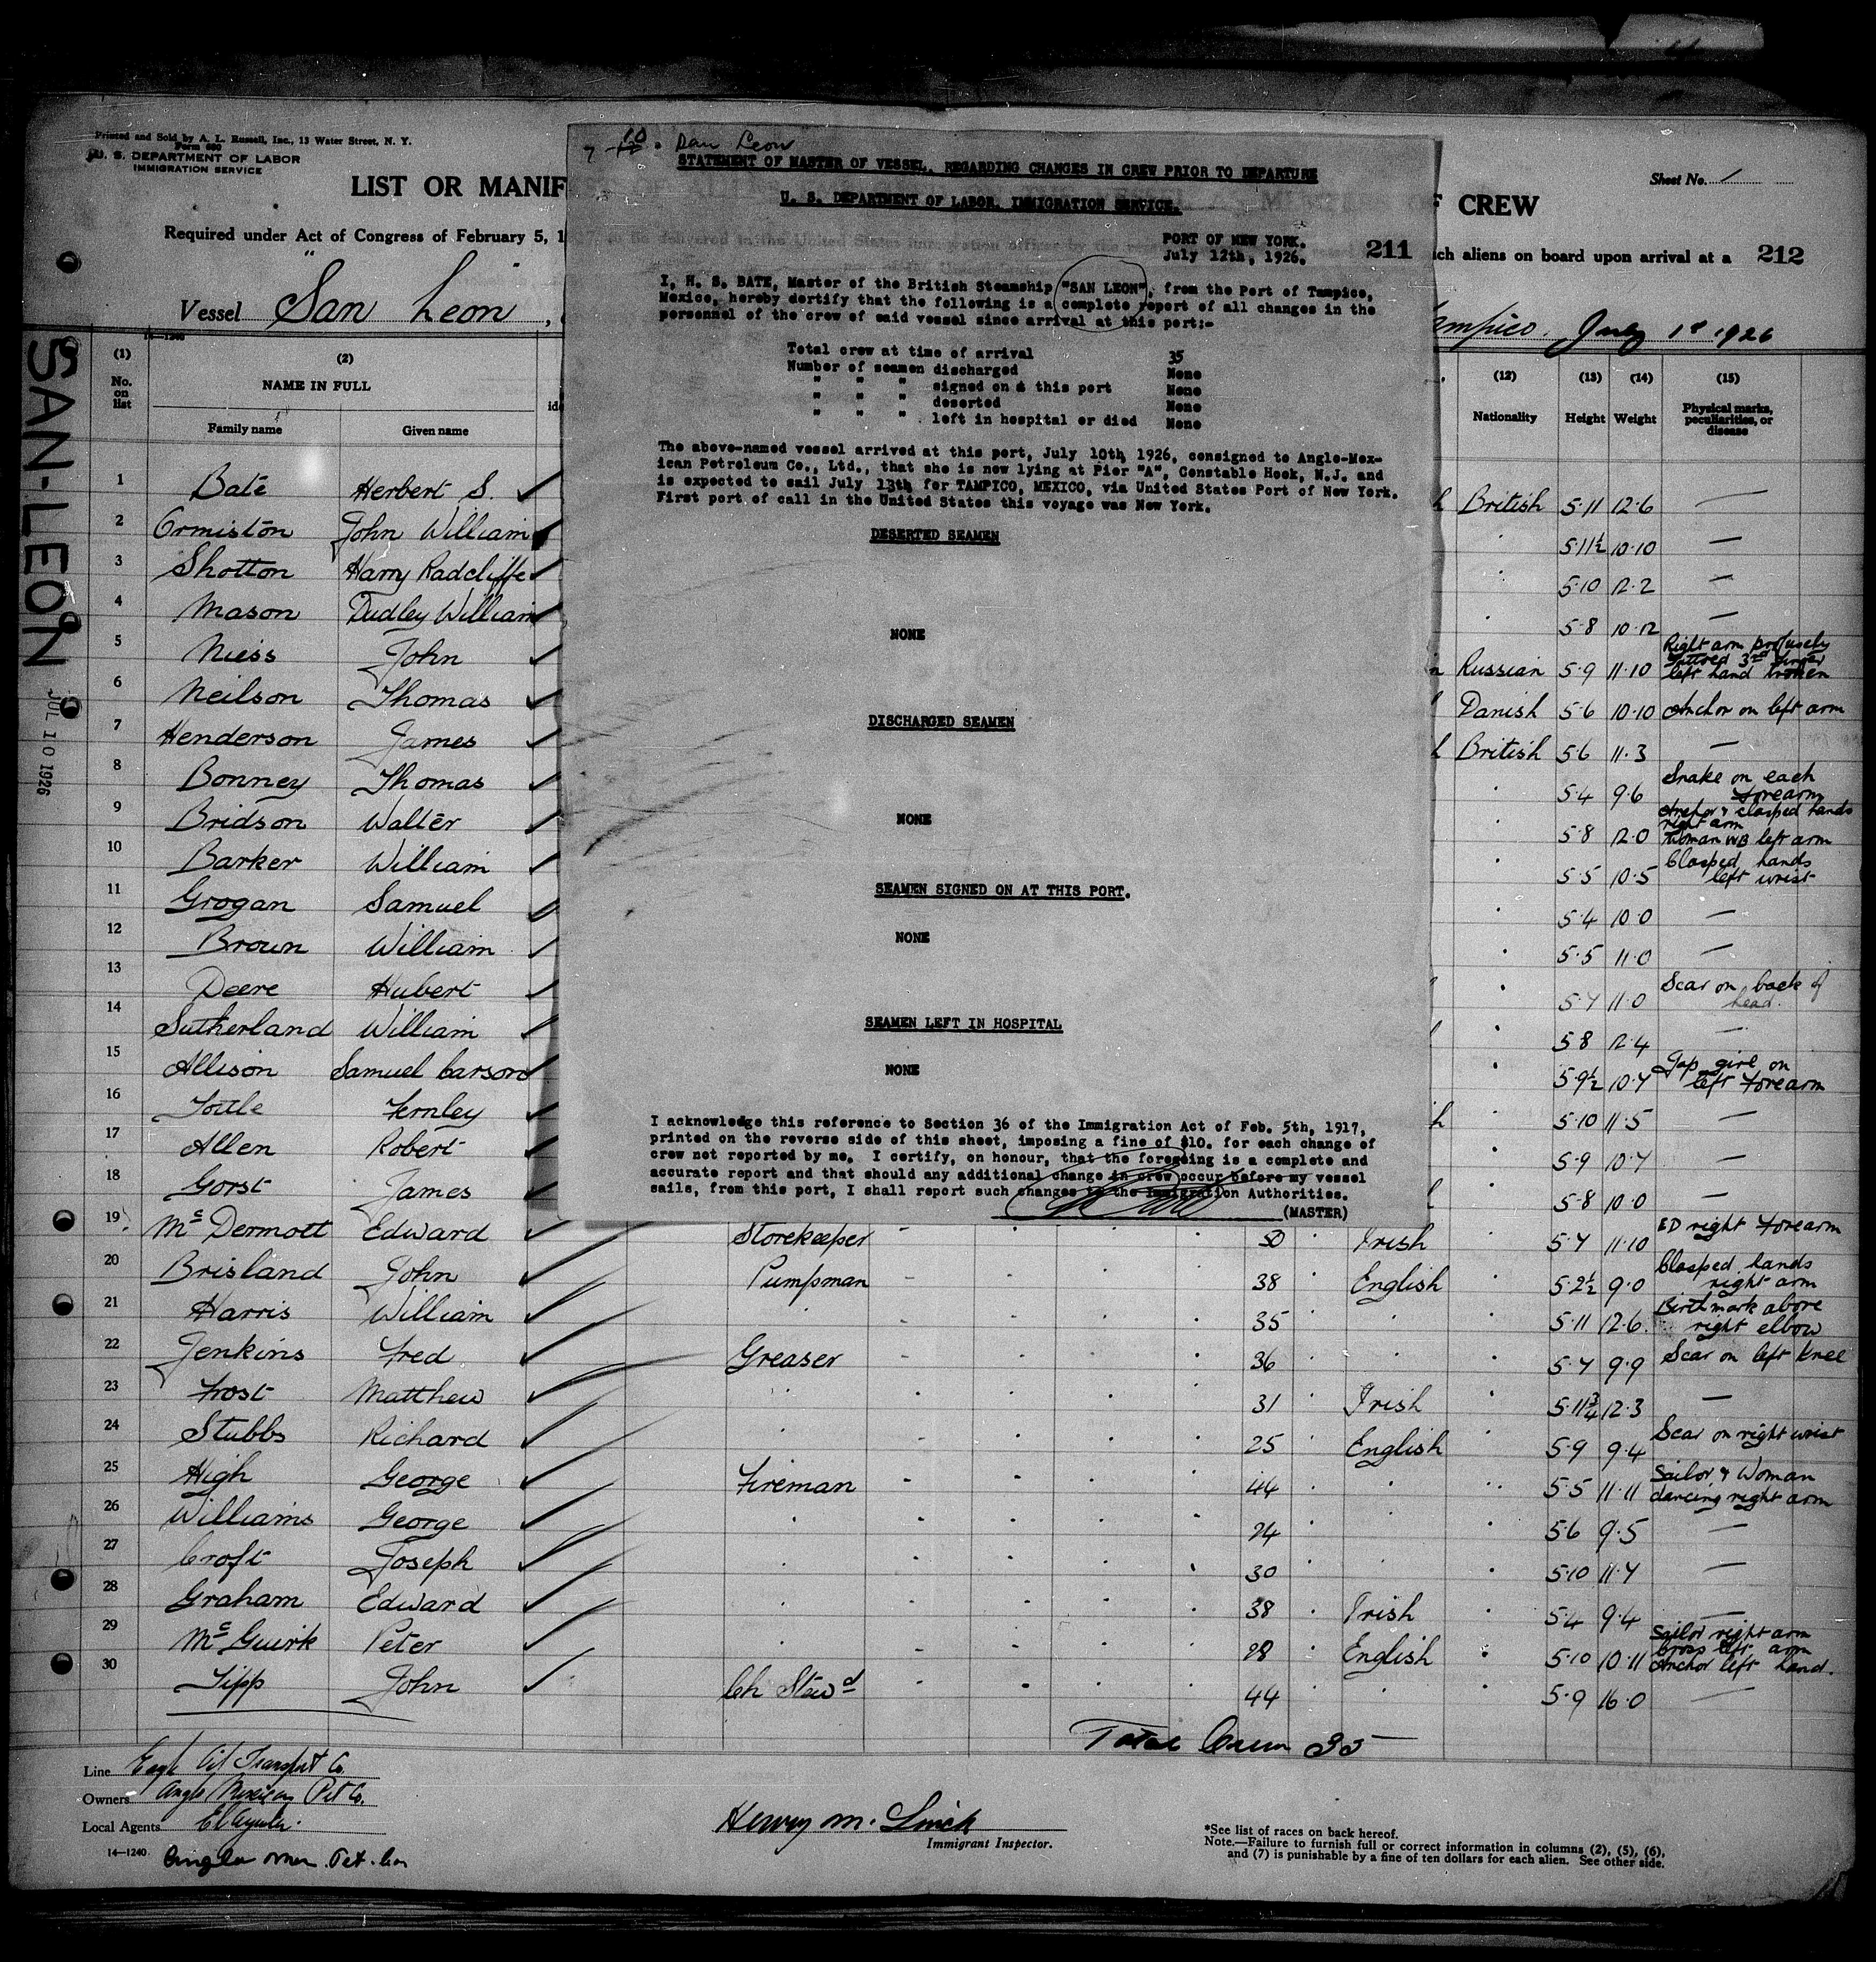 Printed and Sold by A. L. Russell, Inc., 13 Water Street, N. Y.
Form 680
U. S. DEPARTMENT OF LABOR
IMMIGRATION SERVICE
LIST OR MANIF
F CREW
Sheet No. 1
Required under Act of Congress of February 5, 1
ch aliens on board upon arrival at a 212
Vessel "San Leon ,
ampico. July 1st 1926
SAN-LEON
JUL 10 1926
7 - 10 San Leon
STATEMENT OF MASTER OF VESSEL, REGARDING CHANGES IN CREW PRIOR TO DEPARTURE
U. S. DEPARTMENT OF LABOR, IMMIGRATION SERVICE.
PORT OF NEW YORK. 211
July 12th, 1926.
I, H. S. BATE, Master of the British Steamship "SAN LEON", from the Port of Tampico,
Mexico, hereby dertify that the following is a complete report of all changes in the
personnel of the crew of said vessel since arrival at this port:-
Total crew at time of arrival 35
Number of seamen discharged None
" " " signed on & this port None
" " " deserted None
" " " left in hospital or died None
The above-named vessel arrived at this port, July 10th, 1926, consigned to Anglo-Mex-
ican Petroleum Co., Ltd., that she is now lying at Pier "A", Constable Hook, N.J. and
is expected to sail July 13th for TAMPICO, MEXICO, via United States Port of New York.
First port of call in the United States this voyage was New York.
DESERTED SEAMEN
NONE
DISCHARGED SEAMEN
NONE
SEAMEN SIGNED ON AT THIS PORT.
NONE
SEAMEN LEFT IN HOSPITAL
NONE
I acknowledge this reference to Section 36 of the Immigration Act of Feb. 5th, 1917,
printed on the reverse side of this sheet, imposing a fine of $10. for each change of
crew not reported by me. I certify, on honour, that the foregoing is a complete and
accurate report and that should any additional change in crew occur before my vessel
sails, from this port, I shall report such changes to the Immigration Authorities.
(MASTER)
14-1240
(1) (2) (12) (13) (14) (15)
No. on list NAME IN FULL Nationality Height Weight Physical marks, peculiarities, or disease
Family name Given name
1 Bate Herbert S. British 5·11 12·6 —
2 Ormiston John William " 5·11½ 10·10 —
3 Shotton Harry Radcliffe " 5·10 12·2 —
4 Mason Dudley William " 5·8 10·12 —
5 Niess John Russian 5·9 11·10 Right arm profusely tattooed 3rd finger left hand broken
6 Neilson Thomas Danish 5·6 10·10 Anchor on left arm
7 Henderson James British 5·6 11·3 —
8 Bonney Thomas " 5·4 9·6 Snake on each forearm
9 Bridson Walter " 5·8 12·0 Anchor & clasped hands right arm Woman WB left arm
10 Barker William " 5·5 10·5 Clasped hands left wrist
11 Grogan Samuel " 5·4 10·0 —
12 Brown William " 5·5 11·0 —
13 Deere Hubert " 5·7 11·0 Scar on back of head.
14 Sutherland William " 5·8 12·4 —
15 Allison Samuel Carson " 5·9½ 10·7 Jap girl on left forearm
16 Tottle Fernley " 5·10 11·5 —
17 Allen Robert " 5·9 10·7 —
18 Gorst James " 5·8 10·0 —
19 McDermott Edward Storekeeper 50 Irish " 5·7 11·10 ED right forearm
20 Brisland John Pumpman 38 English " 5·2½ 9·0 Clasped hands right arm
21 Harris William " 35 " " 5·11 12·6 Birthmark above right elbow
22 Jenkins Fred Greaser 36 " " 5·7 9·9 Scar on left knee
23 Frost Matthew " 31 Irish " 5·11¾ 12·3 —
24 Stubbs Richard " 25 English " 5·9 9·4 Scar on right wrist
25 High George Fireman 44 " " 5·5 11·11 Sailor & Woman dancing right arm
26 Williams George " 24 " " 5·6 9·5 —
27 Croft Joseph " 30 " " 5·10 11·7 —
28 Graham Edward " 38 Irish " 5·4 9·4 —
29 McGuirk Peter " 28 English " 5·10 10·11 Sailor right arm Cross left arm Anchor left hand.
30 Tipp John Ch Stewd 44 " " 5·9 16·0 —
Total Crew 35
Line Eagle Oil Transport Co.
Owners Anglo Mexican Pet Co.
Local Agents
14-1240 Anglo Mex. Pet. Co
Henry M.
Immigrant Inspector.
*See list of races on back hereof.
Note.—Failure to furnish full or correct information in columns (2), (5), (6),
and (7) is punishable by a fine of ten dollars for each alien. See other side.